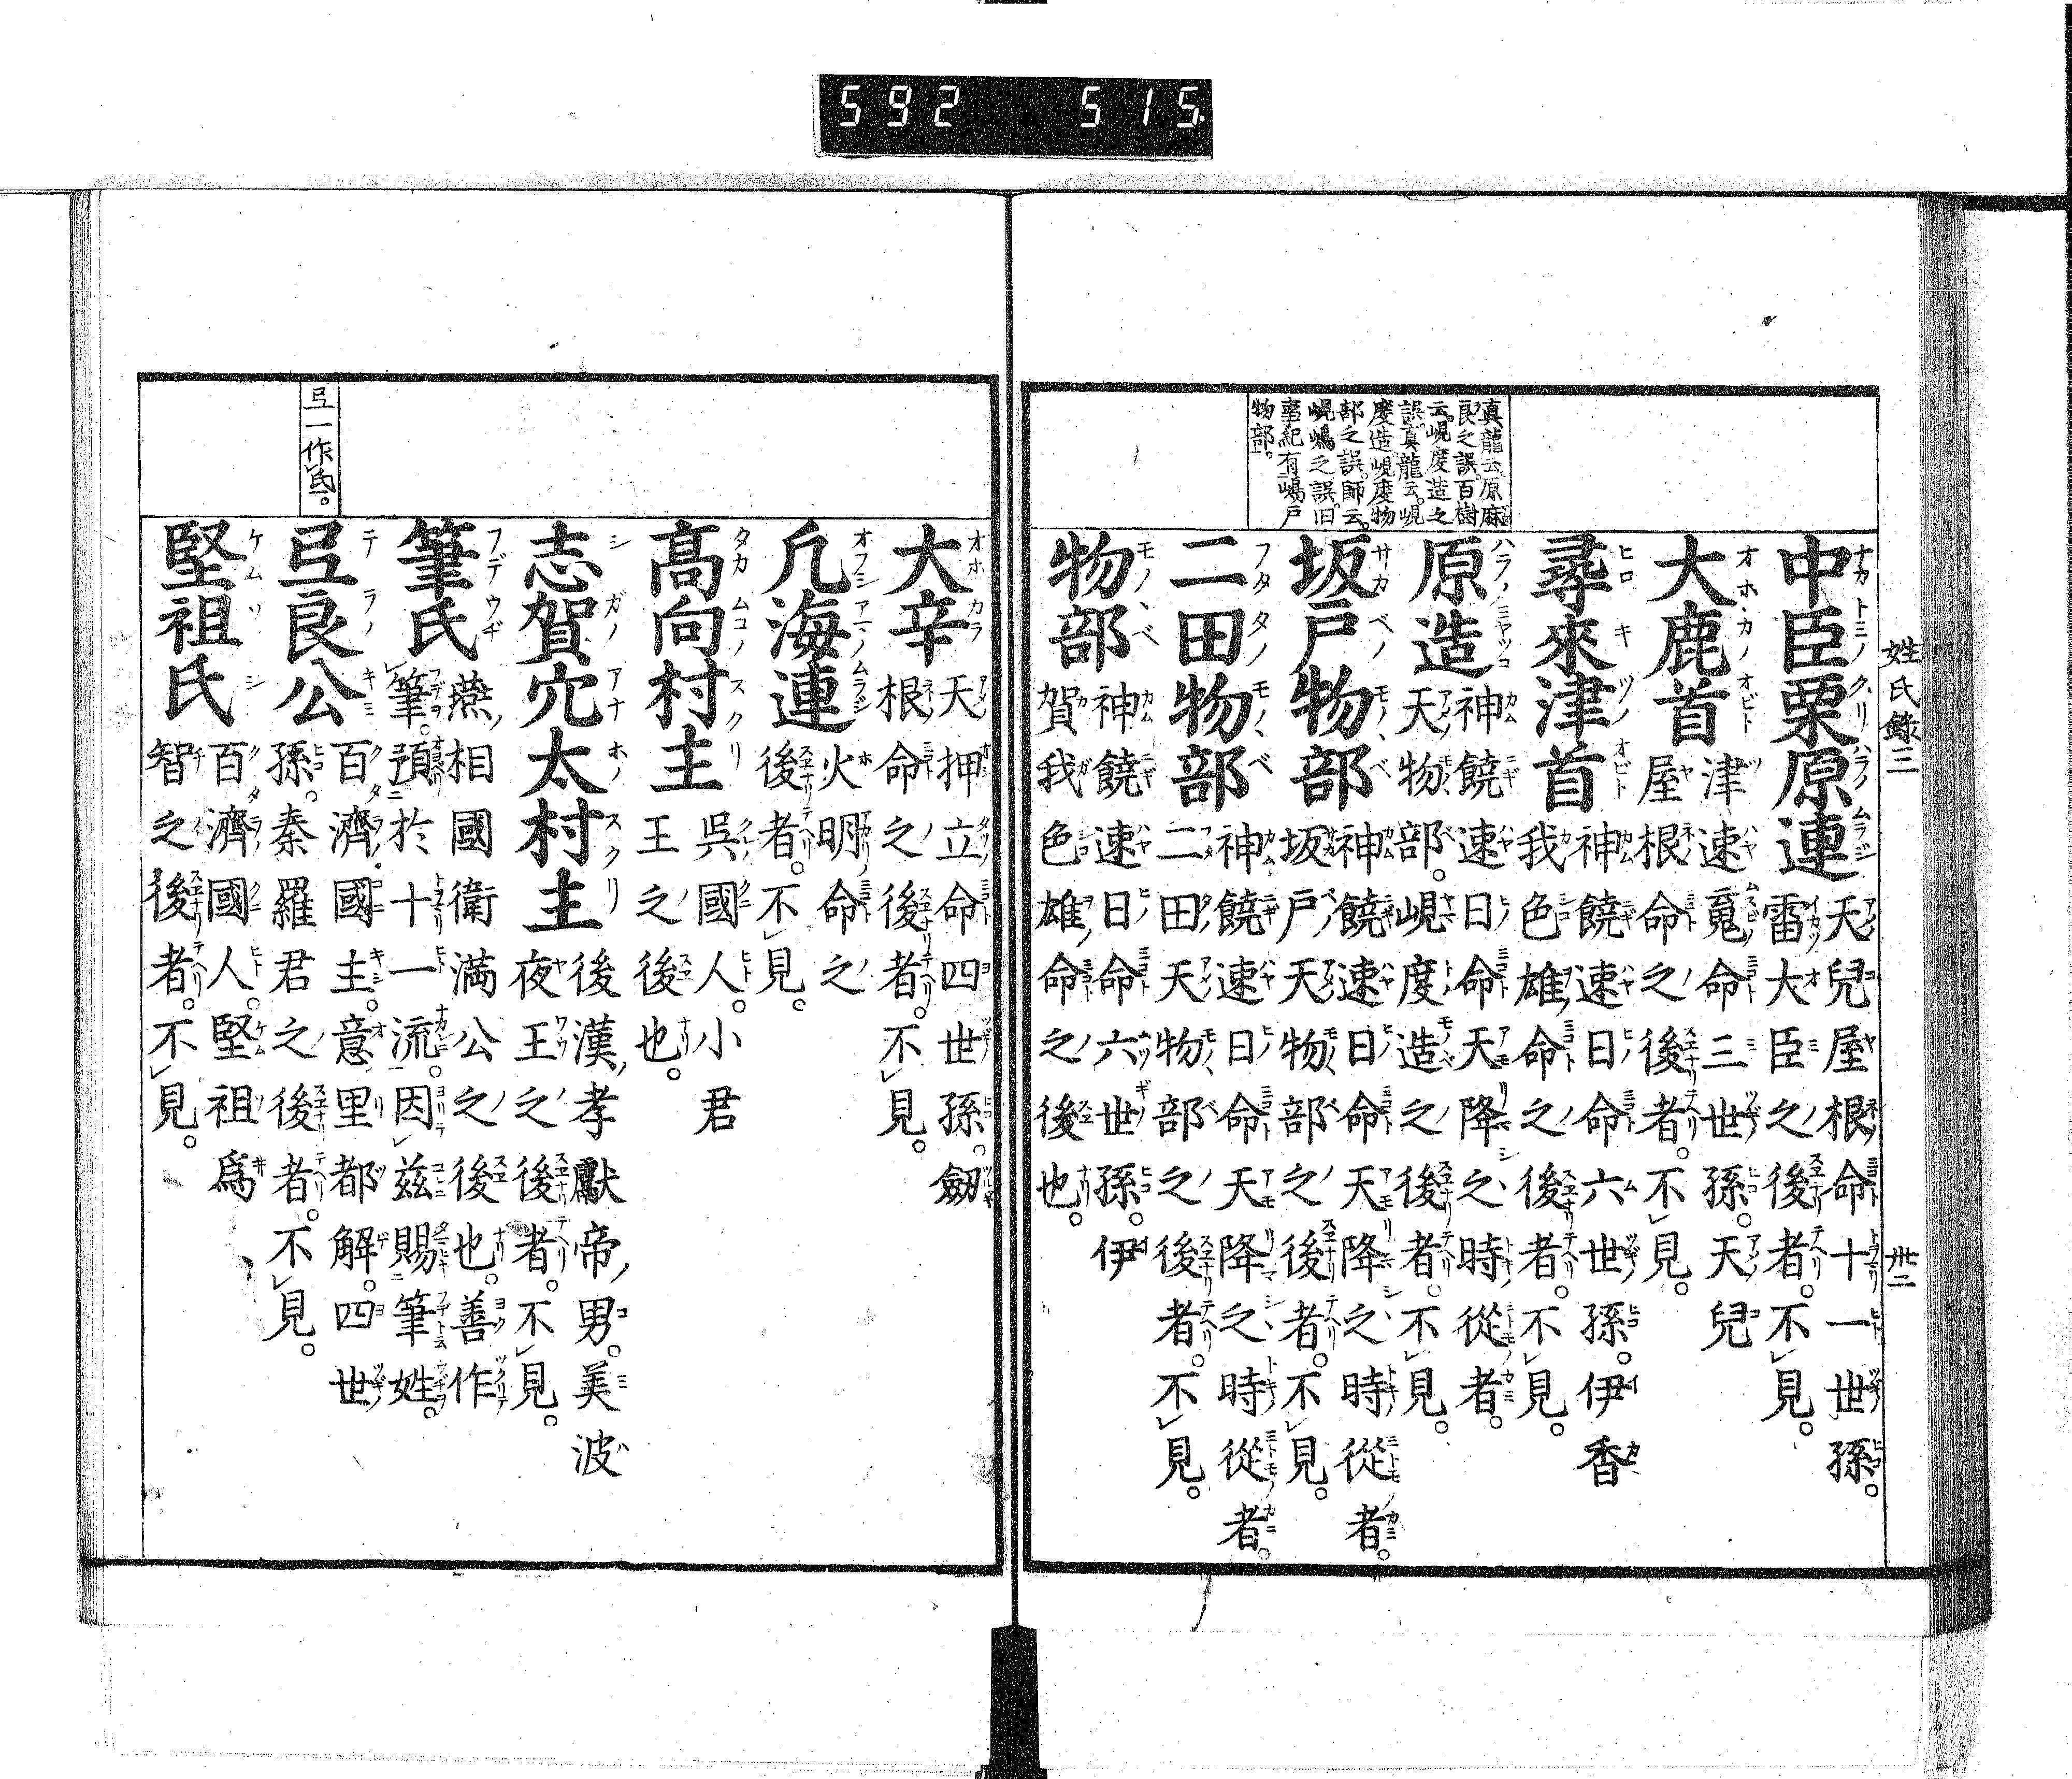 592 515
姓氏錄三 卅二
真龍云原麻
良之誤百樹
云峴度造之
誤真龍云峴
度造峴度物
部之誤師云
峴嶋之誤旧
事紀有嶋戸
物部
中臣栗原連
天兒屋根命十一世孫。
雷大臣之後者。不見。
大鹿首
津速䰟命三世孫。天兒
屋根命之後者。不見。
尋來津首
神饒速日命六世孫。伊香
我色雄命之後者。不見。
原造
神饒速日命天降之時從者。
天物部。峴度造之後者。不見。
坂戸物部
神饒速日命天降之時從者。
坂戸天物部之後者。不見。
二田物部
神饒速日命天降之時從者。
二田天物部之後者。不見。
物部
神饒速日命六世孫。伊
賀我色雄命之後也。
大辛
天押立命四世孫。劔
根命之後者。不見。
凢海連
火明命之
後者。不見。
髙向村主
呉國人。小君
王之後也。
志賀穴太村主
後漢孝獻帝男。美波
夜王之後者。不見。
筆氏
燕相國衛満公之後也。善作
筆。預於十一流。因茲賜筆姓。
弖一作氐。
弖良公
百濟國主。意里都解。四世
孫。秦羅君之後者。不見。
堅祖氏
百濟國人。堅祖爲
智之後者。不見。